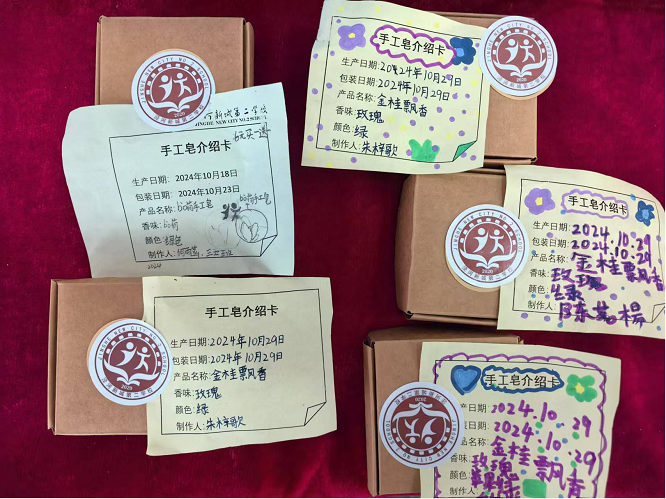 新城第二学校
JINGHE NEW CITY NO.2 SCHOOL
手工皂介绍卡
生产日期：2024年10月18日
包装日期：2024年10月23日
产品名称：bò荷手工皂
香味：bò荷
颜色：绿色
2024
手工皂介绍卡
生产日期：2024年10月29日
包装日期：2024年10月29日
产品名称：金桂飘香
香味：玫瑰
颜色：绿
制作人：朱梓歌
手工皂介绍卡
生产日期：2024.10.29
包装日期：2024.10.29
产品名称：金桂飘香
香味：玫瑰
颜色：绿
制作人：
手工皂介绍卡
生产日期：2024年10月29日
包装日期：2024年10月29日
产品名称：金桂飘香
香味：玫瑰
颜色：绿
制作人：朱梓歌
手工皂介绍卡
生产日期：2024.10.29
包装日期：2024.10.29
产品名称：金桂飘香
香味：玫瑰
颜色：
JINGHE NEW CITY NO.2 SCHOOL
2020
泾河新城第二学校